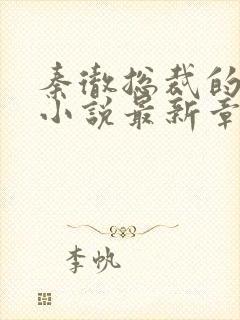 秦徹总裁的
小说最新章
李帆